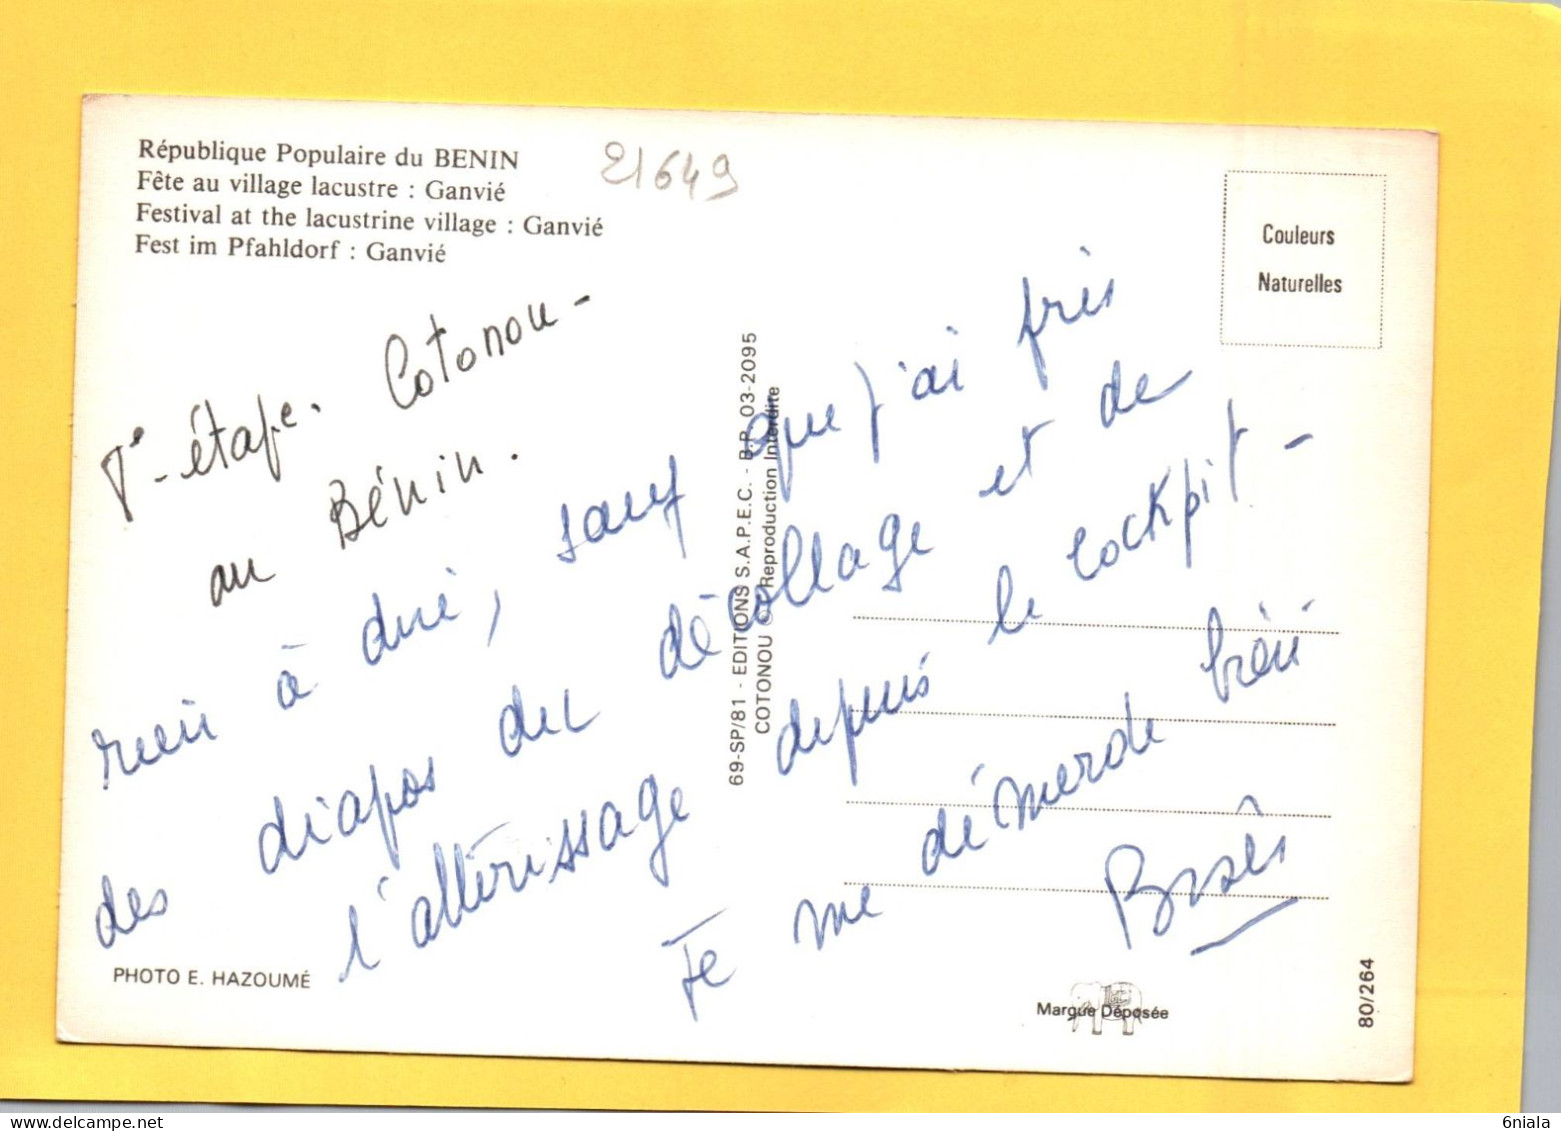 République Populaire du BENIN
Fête au village lacustre : Ganvié
Festival at the lacustrine village : Ganvié
Fest im Pfahldorf : Ganvié
21649
Couleurs
Naturelles
1e - étape. Cotonou -
au Bénin.
rien à dire, sauf que j'ai pris
des diapos du décollage et de
l'attérissage depuis le cockpit -
Je me démerde bien
Bises
69-SP/81 - EDITIONS S.A.P.E.C. - B.P. 03-2095
COTONOU © Reproduction Interdite
PHOTO E. HAZOUMÉ
Marque Déposée
80/264
6niala